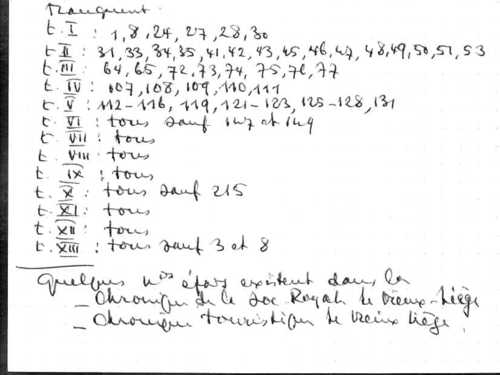 Manquent :
t. I : 1, 8, 24, 27, 28, 30
t. II : 31, 33, 34, 35, 41, 42, 43, 45, 46, 47, 48, 49, 50, 51, 53
t. III : 64, 65, 72, 73, 74, 75, 76, 77
t. IV : 107, 108, 109, 110, 111
t. V : 112-116, 119, 121-123, 125-128, 131
t. VI : tous sauf 147 et 149
t. VII : tous
t. VIII : tous
t. IX : tous
t. X : tous sauf 215
t. XI : tous
t. XII : tous
t. XIII : tous sauf 3 et 8
Quelques nos épars existent dans la
- Chronique de la Soc Royale le Vieux-Liège
- Chronique touristique le Vieux Liège.